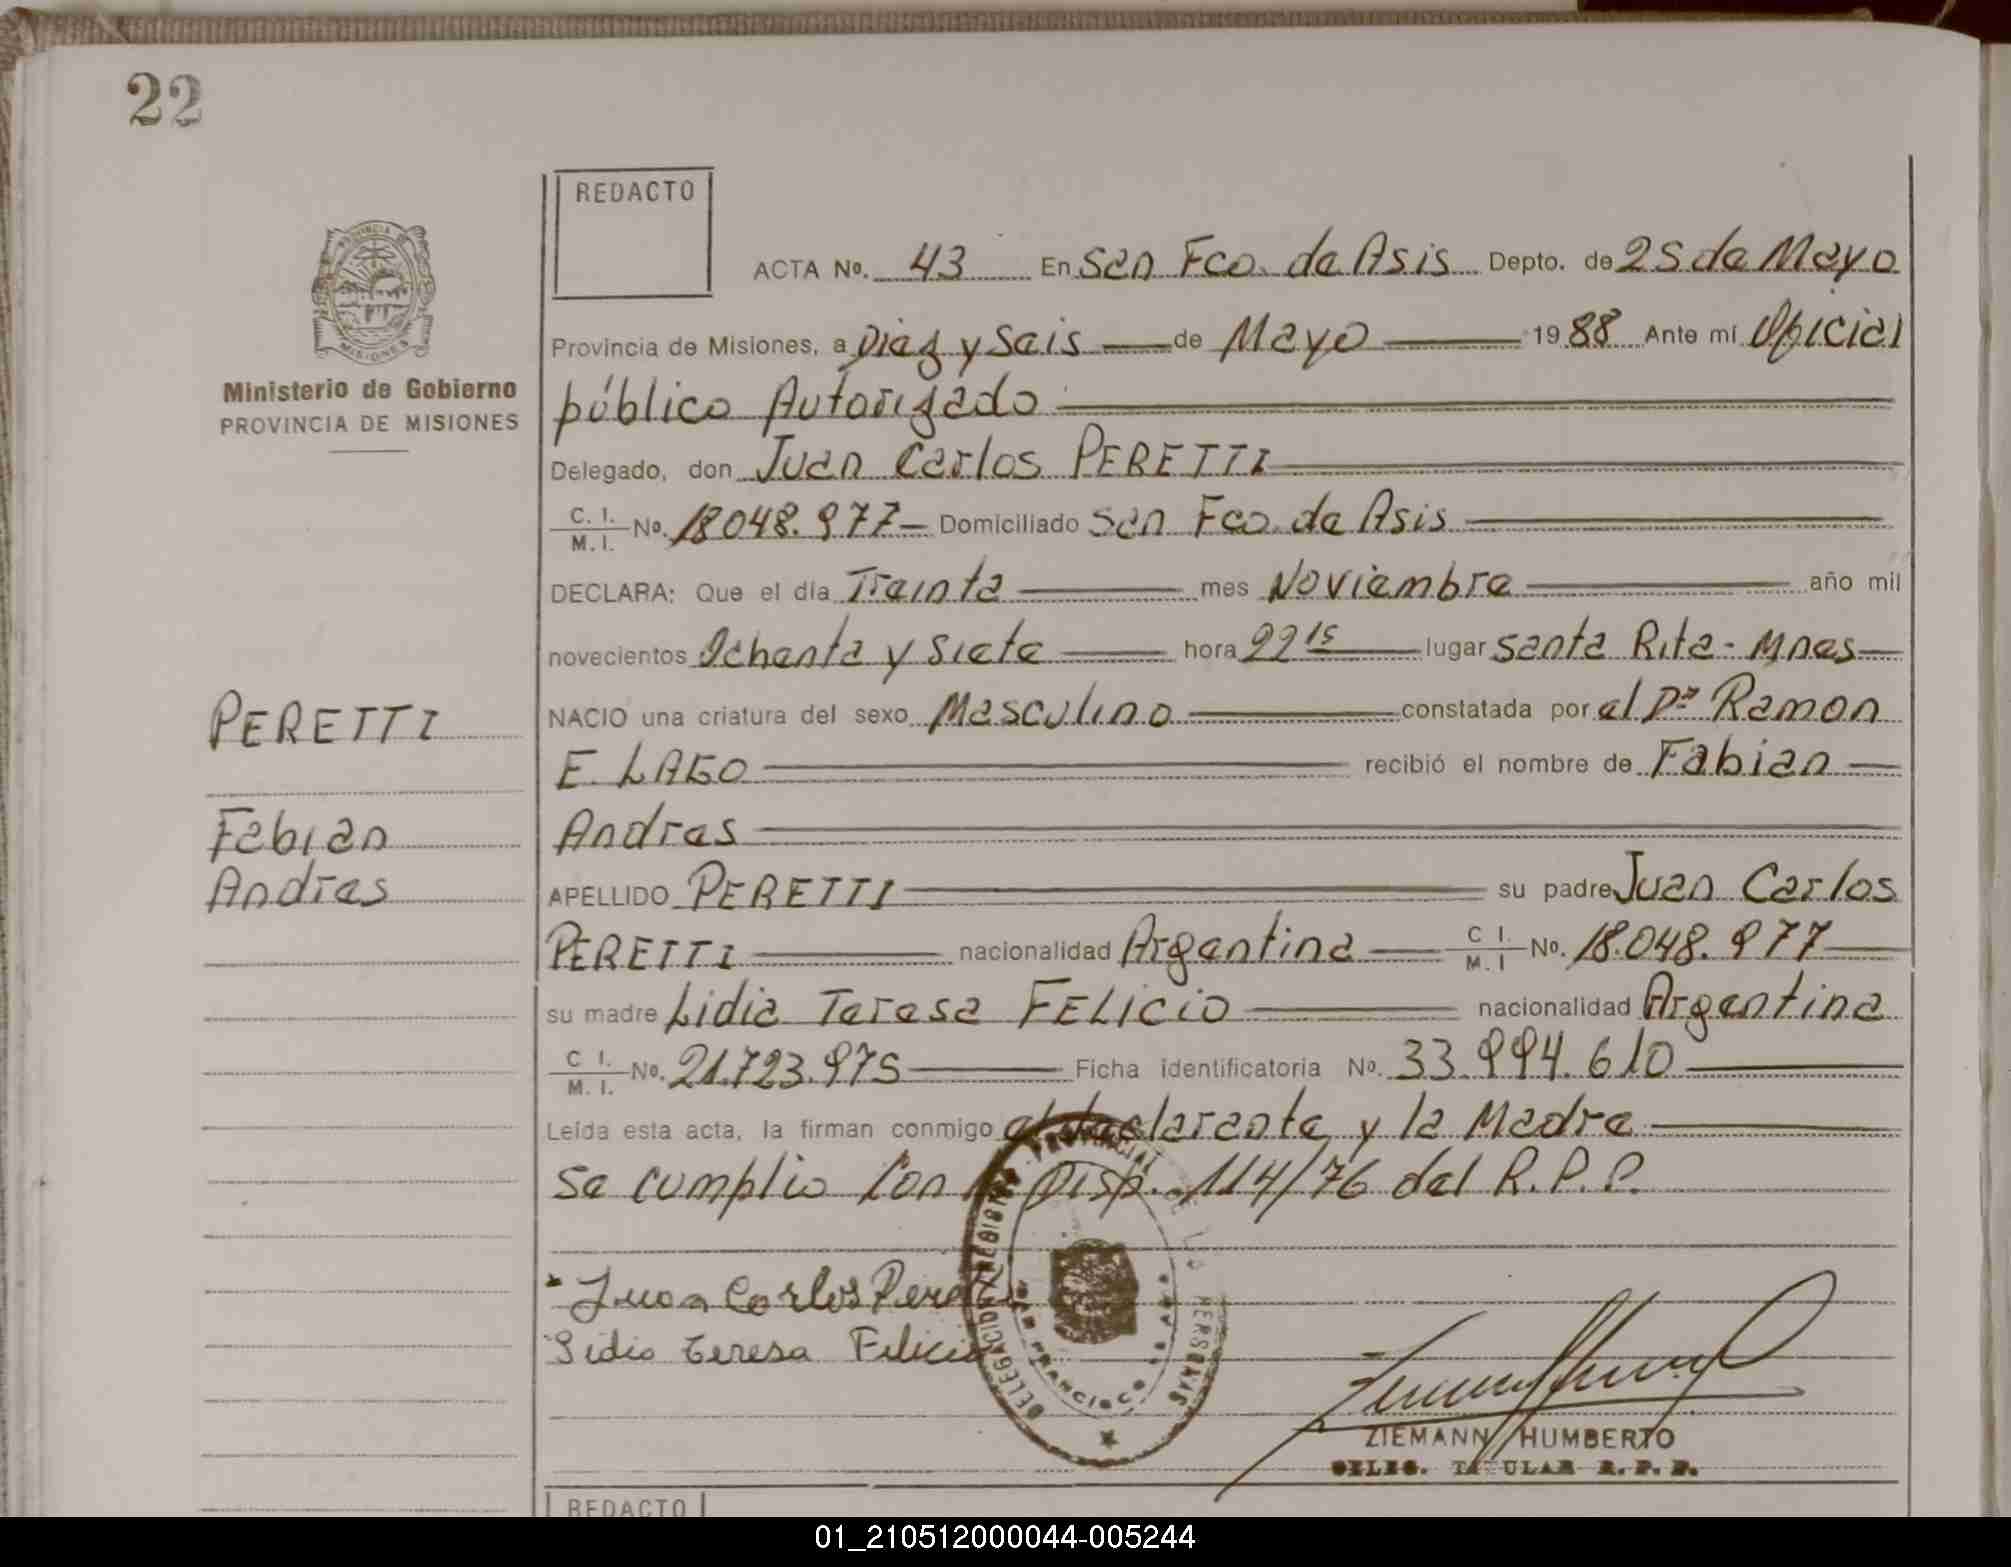 22
REDACTO
ACTA No. 43 En San Fco. de Asis Depto. de 25 de Mayo
Provincia de Misiones, a Diez y Seis de Mayo 1988 Ante mí Oficial
público Autorizado
Ministerio de Gobierno
PROVINCIA DE MISIONES
Delegado, don Juan Carlos PERETTI
C. I. / M. I. No. 18048.977 Domiciliado San Fco. de Asis
DECLARA: Que el día Treinta mes Noviembre año mil
novecientos Ochenta y Siete hora 22 15 lugar Santa Rita - Mnes
NACIO una criatura del sexo Masculino constatada por el Dr Ramon
PERETTI
E. LAGO recibió el nombre de Fabian
Fabian
Andres
Andres
APELLIDO PERETTI su padre Juan Carlos
PERETTI nacionalidad Argentina C I. / M. I No. 18.048.977
su madre Lidia Teresa FELICIO nacionalidad Argentina
C I. / M. I. No. 21.723.975 Ficha identificatoria No. 33.994.610
Leída esta acta, la firman conmigo el declarante y la Madre
Se cumplio Con Disp. 114/76 del R.P.P.
DELEGACION REGISTRO PROVINCIAL DE LAS PERSONAS
SAN FRANCISCO DE ASIS
Juan Carlos Peretti
Lidia Teresa Felicio
ZIEMANN HUMBERTO
DELEG. TITULAR R. P. P.
REDACTO
01_210512000044-005244